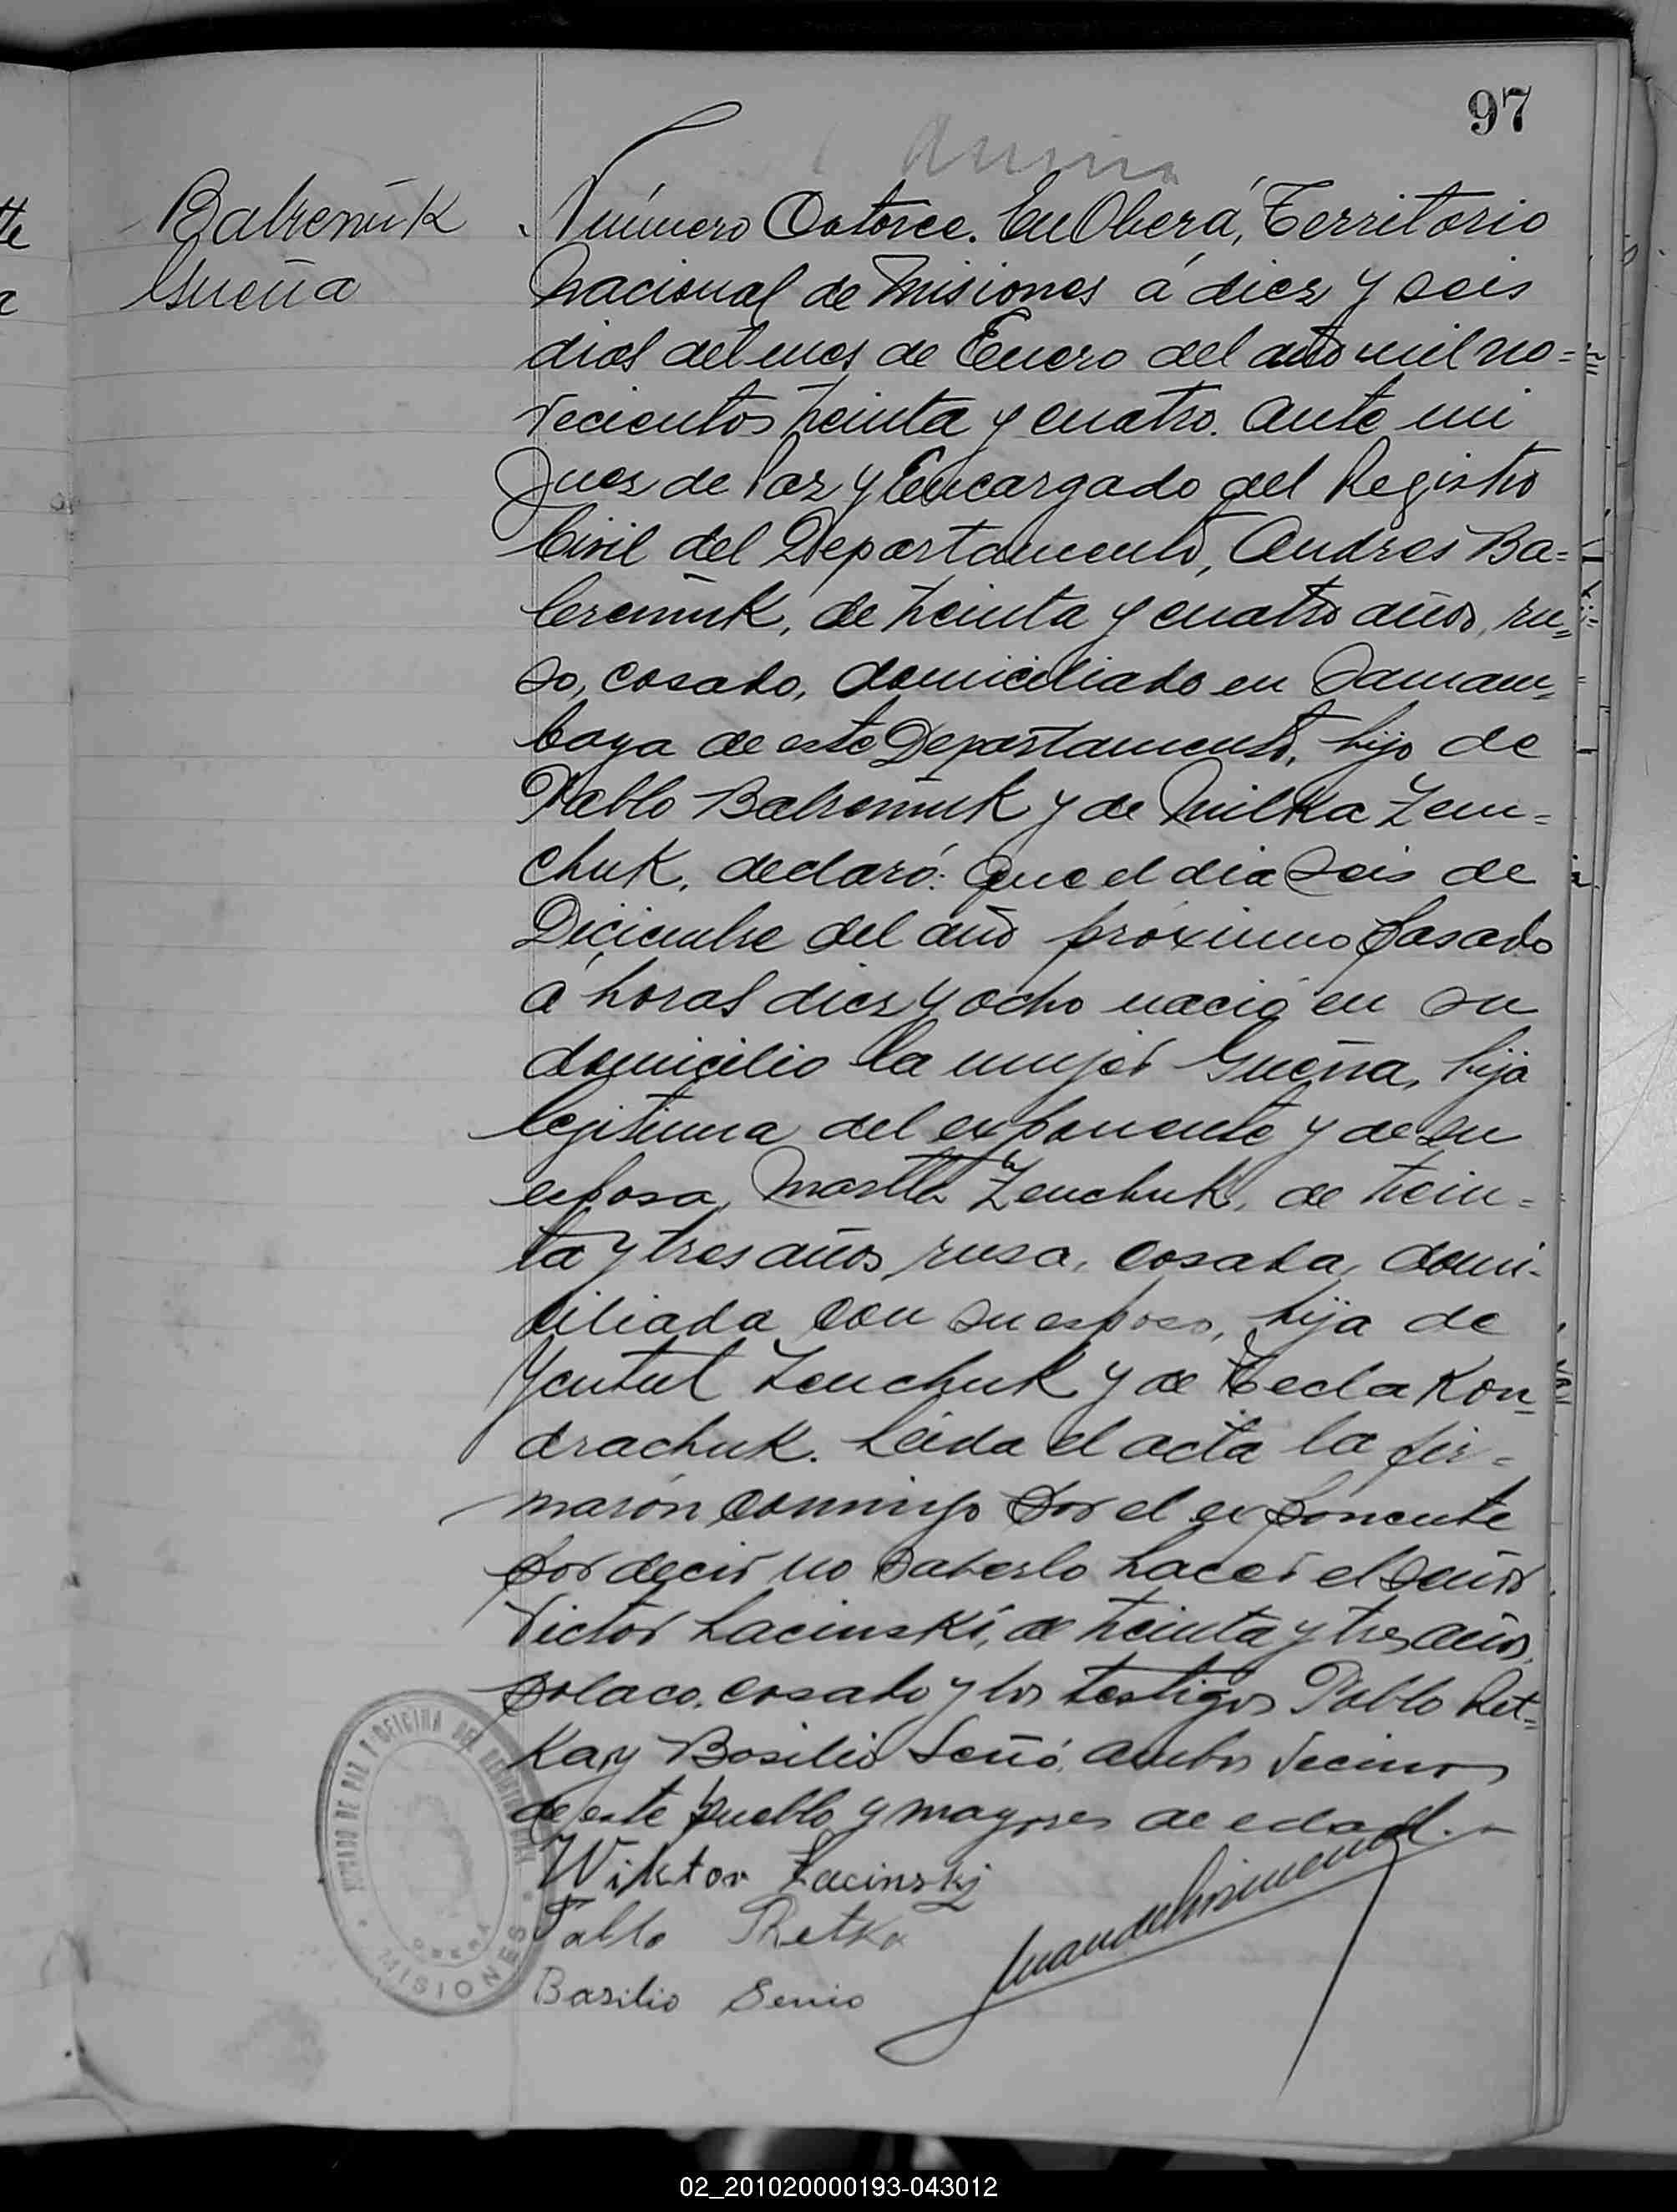 97
Balreniuk
Gueña
Número Catorce. En Oberá, Territorio
Nacional de Misiones á diez y seis
dias del mes de Enero del año mil no=
vecientos treinta y cuatro. Ante mi
Juez de Paz y Encargado del Registro
Civil del Departamento, Andres Ba=
lreniuk, de treinta y cuatro años, ru=
so, casado, domiciliado en Samam=
baya de este Departamento, hijo de
Pablo Balreniuk y de Milka Zen=
chuk, declaró: Que el dia seis de
Diciembre del año próximo pasado
á horas diez y ocho nació en su
domicilio la mujer Gueña, hija
legitima del exponente y de su
esposa, Martha Zenchuk, de trein=
ta y tres años, rusa, casada, domi-
ciliada con su esposo, hija de
Zenchuk y de Tecla Kon=
drachuk. Leida el acta la fir=
marón conmigo por el exponente
por decir no saberlo hacer el señor
Victor Lacinski, de treinta y tres años,
polaco, casado y los testigos Pablo Ret=
ka y Basilio Señó, ambos vecinos
de este pueblo y mayores de edad.-
Wiktor Łacinskj
Pablo Retka
Basilio Senio
JUZGADO DE PAZ Y OFICINA DEL REGISTRO CIVIL
OBERA
MISIONES
02_201020000193-043012